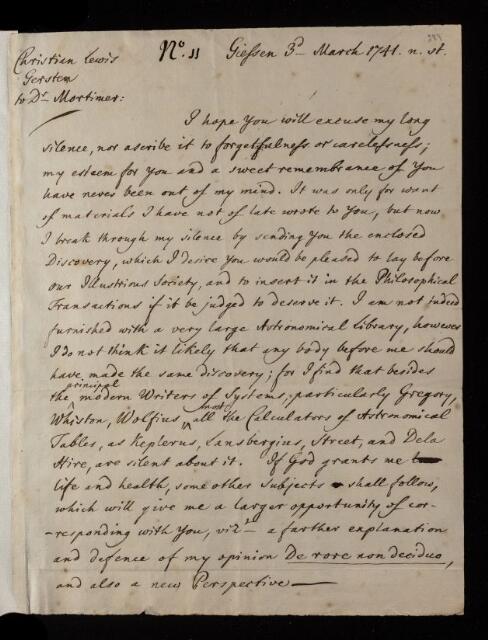 Christian Lewis
Gersten
to Dr Mortimer:
No 11 Giessen 3d March 1741. n. st.
I hope You will excuse my long
silence, nor ascribe it to forgetfulness or carelessness;
my esteem for you and a sweet remembrance of You
have never been out of my mind. It was only for want
of materials I have not of late wrote to You, but now
I break through my silence by sending You the enclosed
Discovery, which I desire You would be pleased to lay before
our Illustrious Society, and to insert it in the Philosophical
Transactions if it be judged to deserve it. I am not indeed
furnished with a very large Astronomical Library, however
I do not think it likely that any body before me should
have made the same discovery; for I find that besides
the principal modern Writers of Systems, particularly Gregory,
Whiston, Wolfius, most all the Calculators of Astronomical
Tables, as Keplerus, Lansbergius, Street, and Dela
Hire, are silent about it. If God grants me
life and health, some other Subjects shall follow,
which will give me a larger opportunity of cor-
-responding with You, vizt a farther explanation
and defence of my opinion De rore non deciduo,
and also a new Perspective